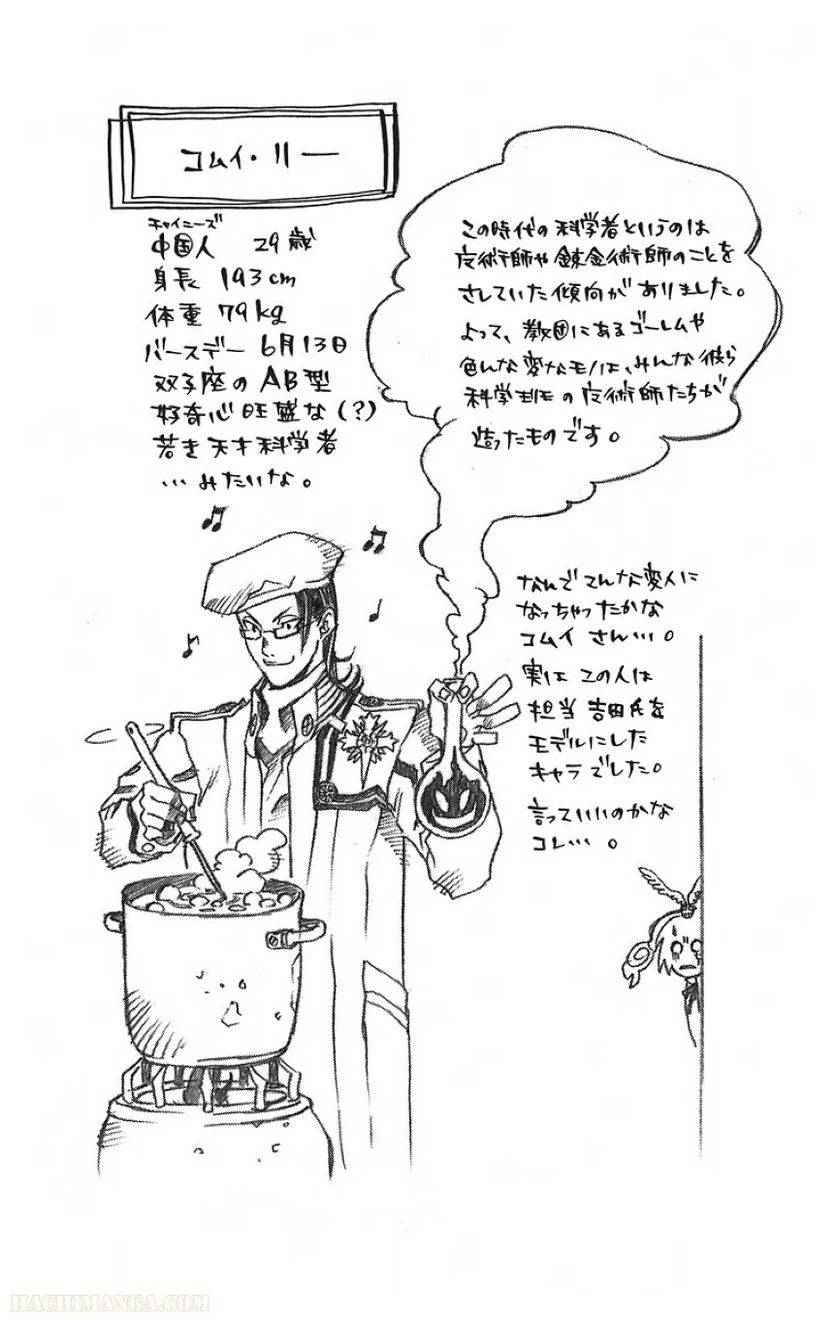 コムイ・リー
チャイニーズ
中国人 29歳
身長 193cm
体重 79kg
バースデー 6月13日
双子座の AB型
好奇心旺盛な(?)
若き天才科学者
…みたいな。
この時代の科学者というのは
魔術師や錬金術師のことを
さしていた傾向がありました。
よって、教団にあるゴーレムや
色んな変なモノは、みんな彼ら
科学班の魔術師たちが
造ったものです。
なんでこんな変人に
なっちゃったかな
コムイさん…。
実はこの人は
担当吉田氏を
モデルにした
キャラでした。
言っていいのかな
コレ…。
HACHIMANGA.COM